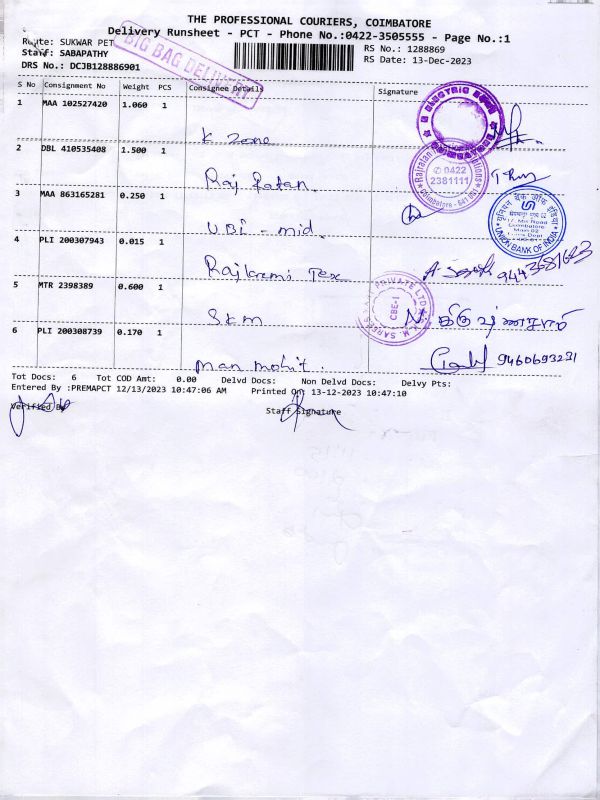 THE PROFESSIONAL COURIERS, COIMBATORE
Delivery Runsheet - PCT - Phone No.:0422-3505555 - Page No.:1
BIG BAG DELIVERY
Route: SUKWAR PET
RS No.: 1288869
Staff: SABAPATHY
RS Date: 13-Dec-2023
DRS No.: DCJB128886901
S No Consignment No Weight PCS Consignee Details Signature
1 MAA 102527420 1.060 1
K Zone
2 DBL 410535408 1.500 1
Raj Ratan
✆ 0422
2381111
Coimbatore - 641 001
3 MAA 863165281 0.250 1
UBI - mid
यूनियन बैंक ऑफ इंडिया
Coimbatore
Main 02
UNION BANK OF INDIA
4 PLI 200307943 0.015 1
Rajlaxmi Tex
9443681623
5 MTR 2398389 0.600 1
SKM
PRIVATE LTD
CBE-1
6 PLI 200308739 0.170 1
Man mohit.
9460693231
Tot Docs: 6 Tot COD Amt: 0.00 Delvd Docs: Non Delvd Docs: Delvy Pts:
Entered By :PREMAPCT 12/13/2023 10:47:06 AM Printed On: 13-12-2023 10:47:10
Verified By
Staff Signature